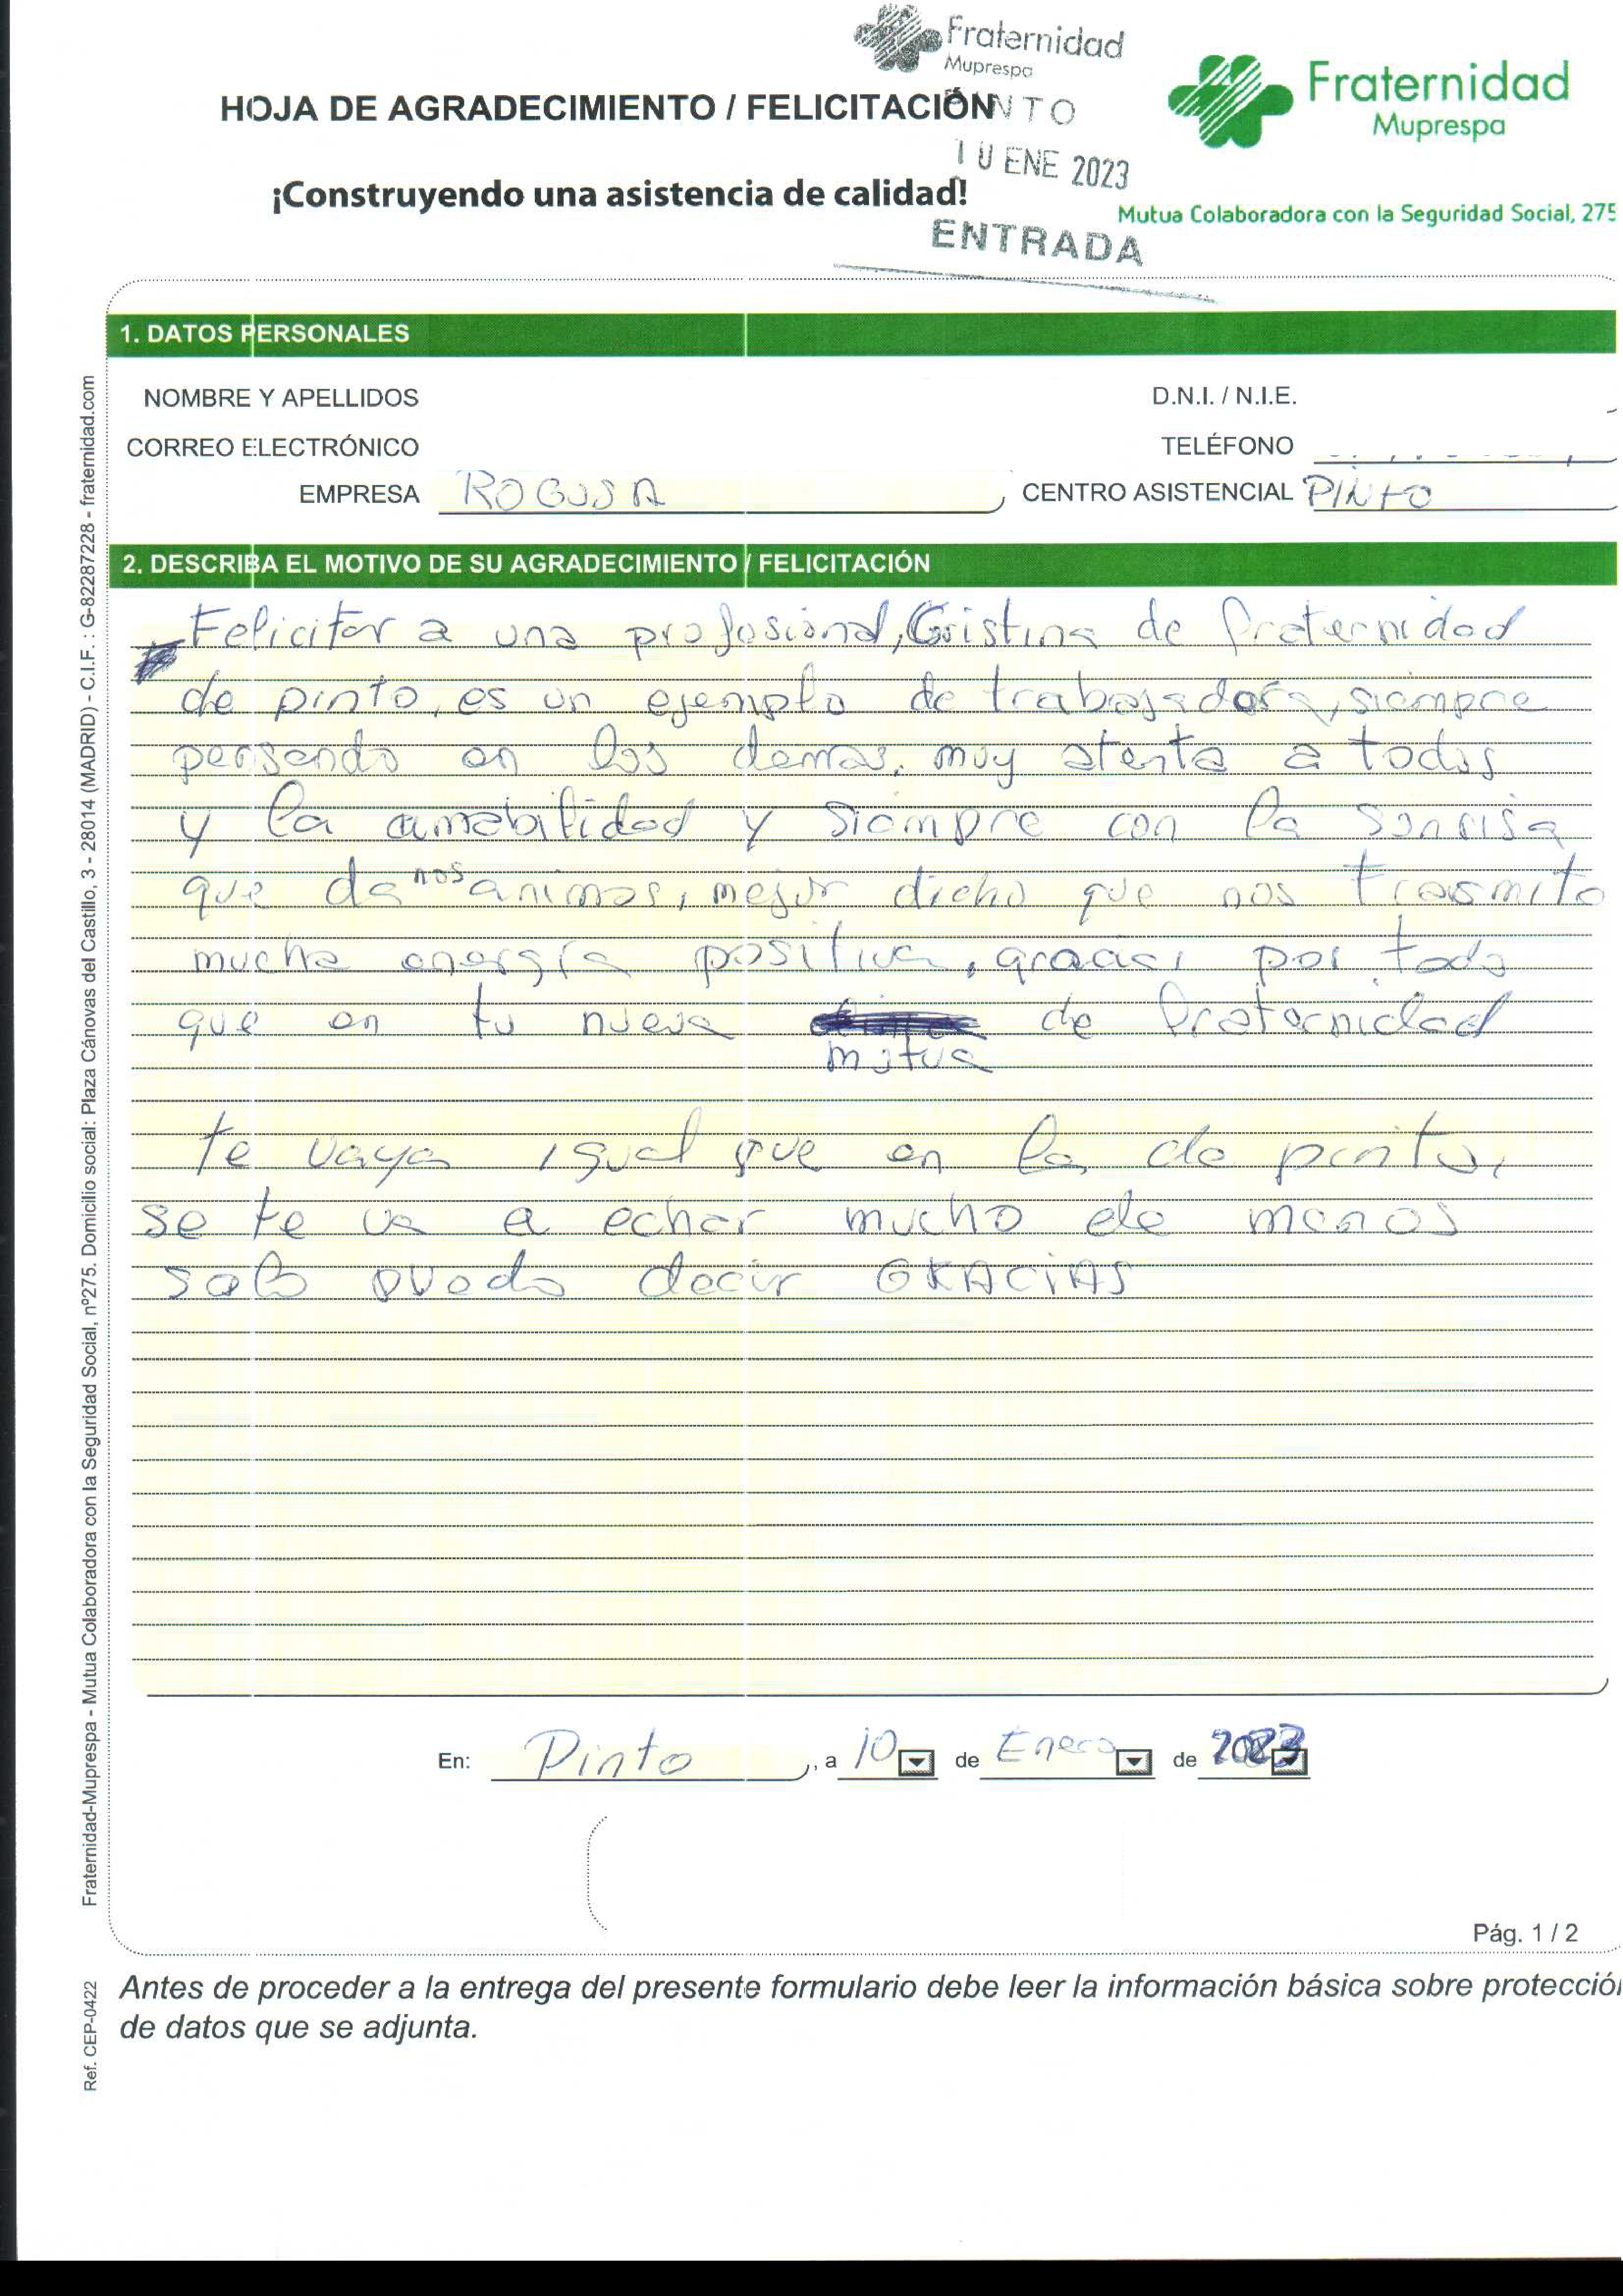 Fraternidad
Muprespa
PINTO
10 ENE 2023
ENTRADA
Fraternidad
Muprespa
Mutua Colaboradora con la Seguridad Social, 275
HOJA DE AGRADECIMIENTO / FELICITACIÓN
¡Construyendo una asistencia de calidad!
1. DATOS PERSONALES
NOMBRE Y APELLIDOS
D.N.I. / N.I.E.
CORREO ELECTRÓNICO
TELÉFONO
EMPRESA ROGUSA
CENTRO ASISTENCIAL PINTO
2. DESCRIBA EL MOTIVO DE SU AGRADECIMIENTO / FELICITACIÓN
Felicitar a una profosional, Cristina de fraternidad
de pinto, es un ejemplo de trabajadora, siempre
pensando en los demas, muy atenta a todos
y la amabilidad y siempre con la sonrisa
que da nos animos, mejor dicho que nos trasmite
mucha energía positiva, gracias por todo
que en tu nueva mutua de fraternidad
te vaya igual que en la de pinto,
se te va a echar mucho de menos
solo puedo decir GRACIAS
En: Pinto, a 10 de Enero de 2023
Pág. 1 / 2
Antes de proceder a la entrega del presente formulario debe leer la información básica sobre protección
de datos que se adjunta.
Fraternidad-Muprespa - Mutua Colaboradora con la Seguridad Social, nº275. Domicilio social: Plaza Cánovas del Castillo, 3 - 28014 (MADRID) - C.I.F. : G-82287228 - fraternidad.com
Ref. CEP-0422